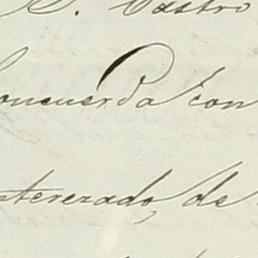 S. Castro
Concuerda con
nterezado, de